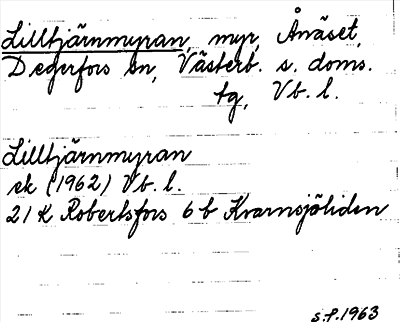 Lilltjärnmyran, myr, Ånäset,
Degerfors sn, Västerb. s. doms.
tg, Vb. l.
Lilltjärnmyran
ek (1962) Vb. l.
21 K Robertsfors 6 b Kvarnsjöliden
s.f. 1963